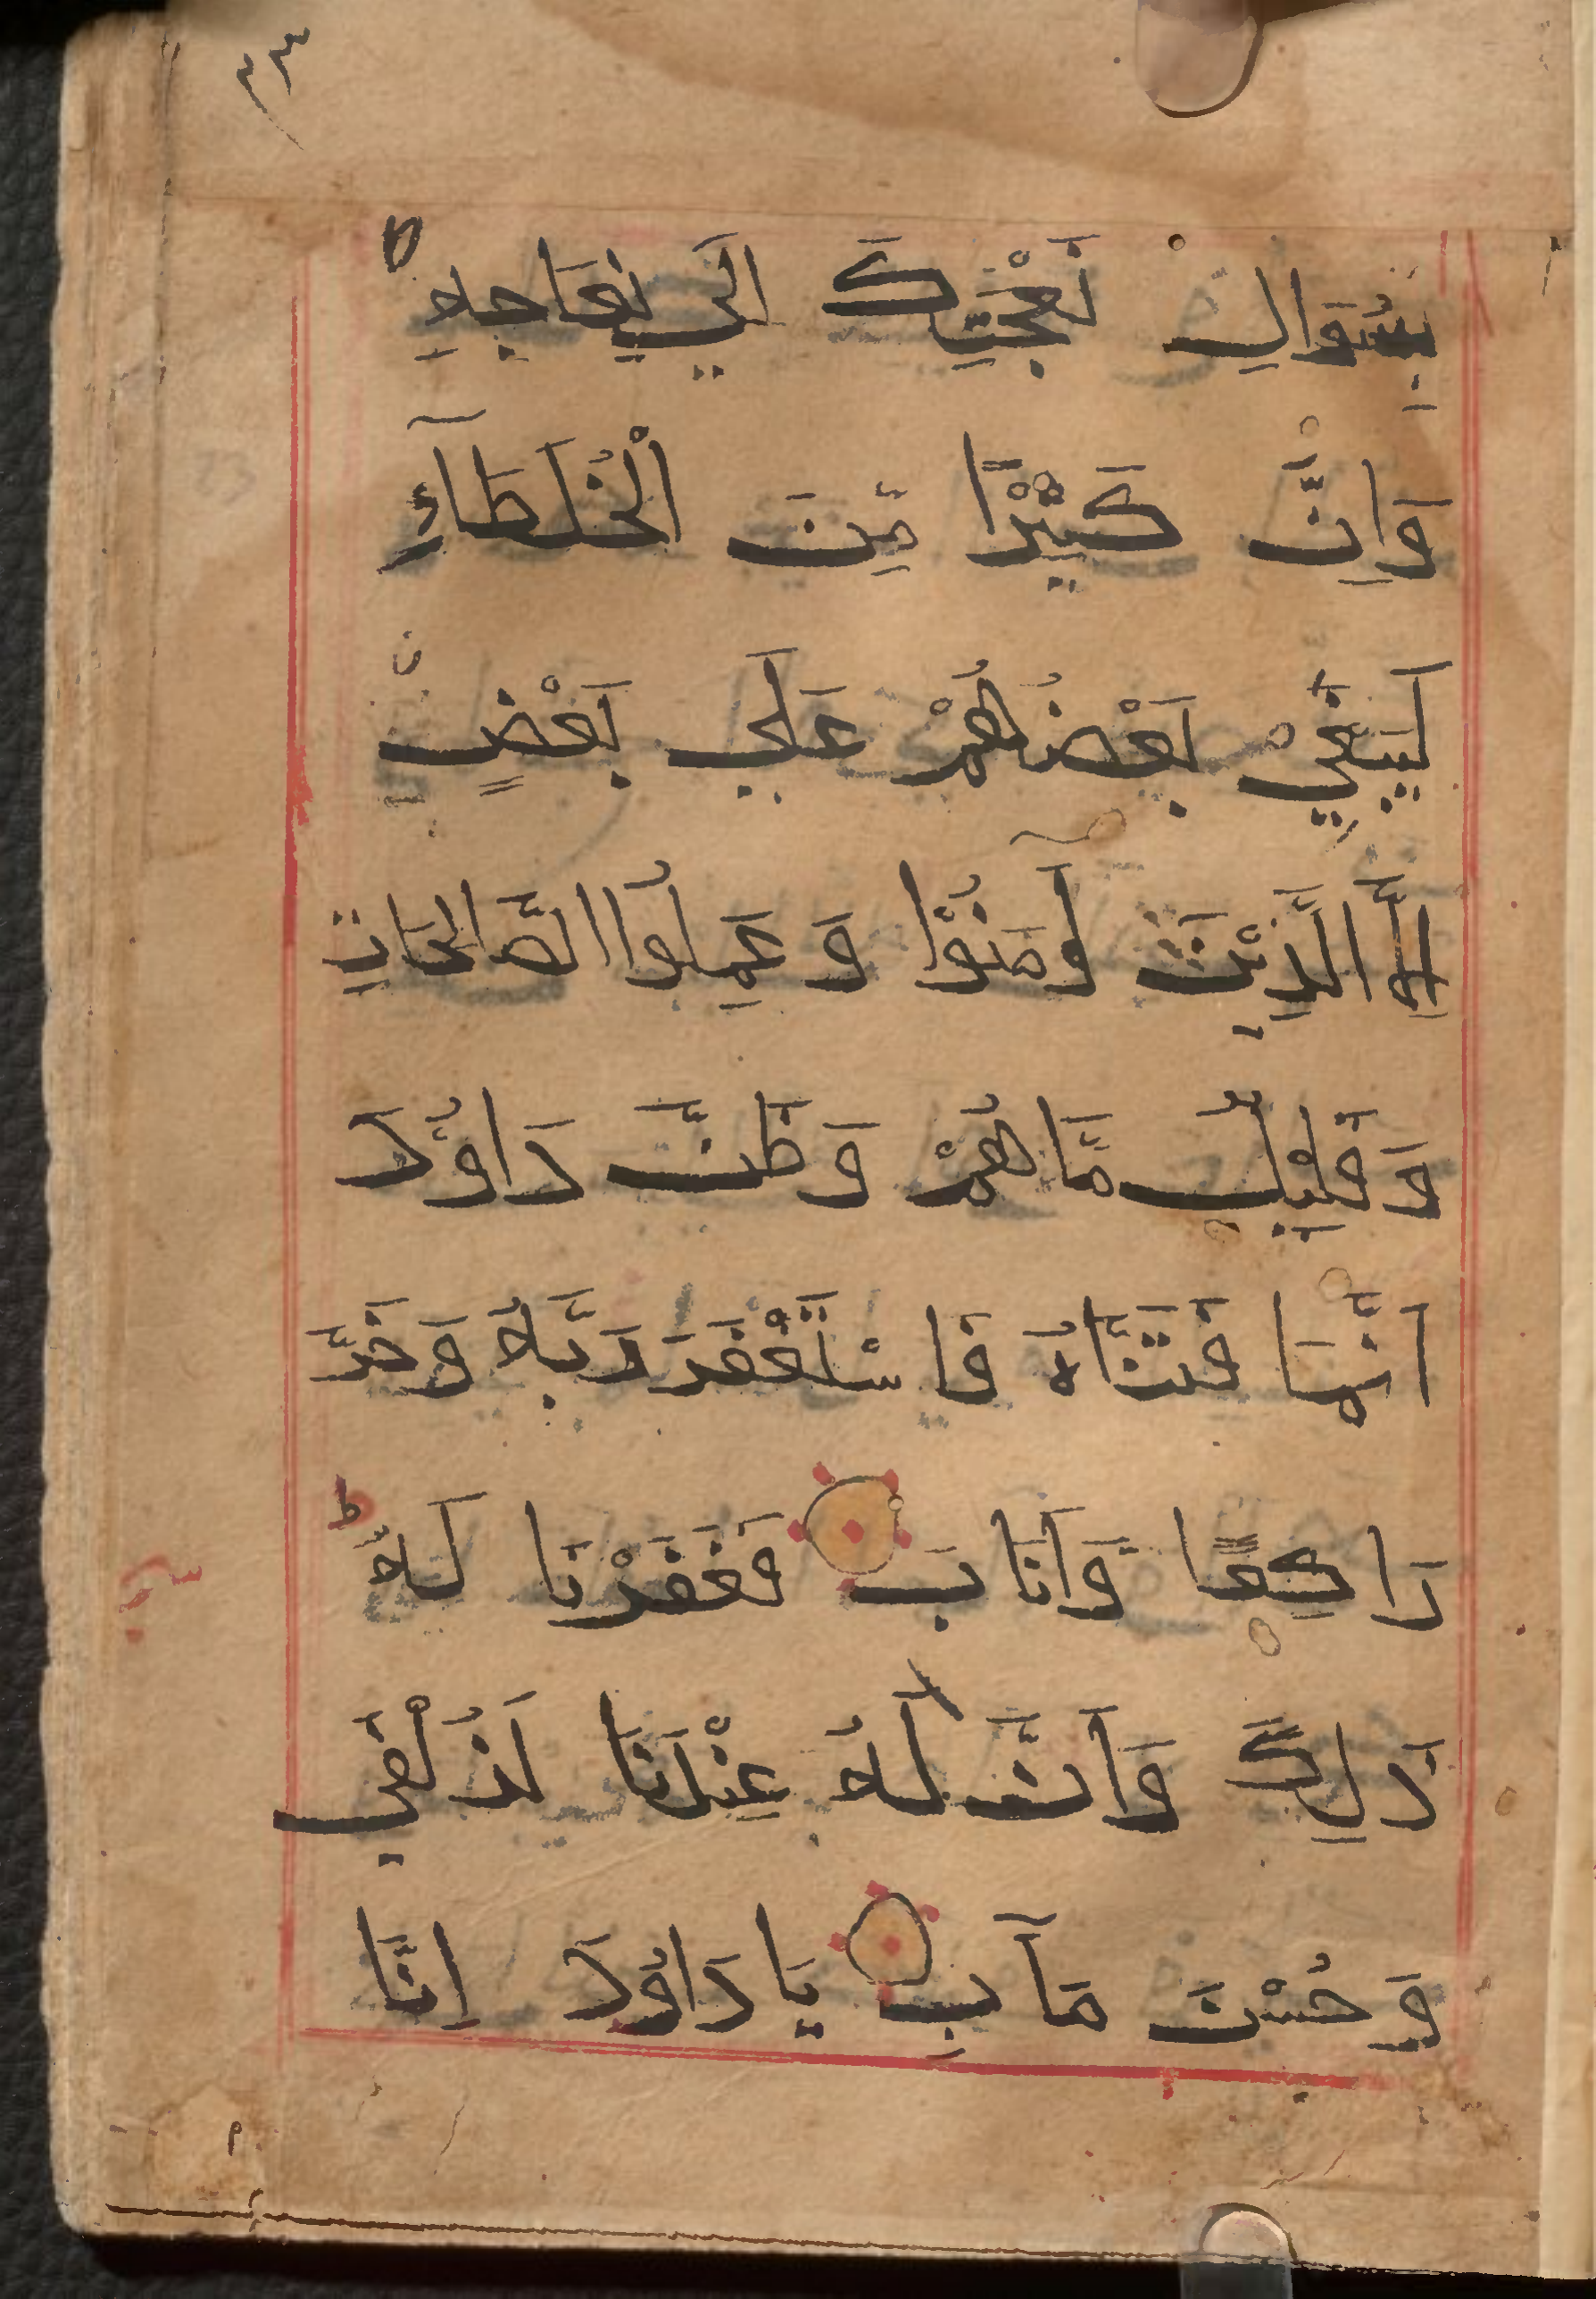 ٢٣
بِسُوَالِ نَعْجَتِكَ اِلَي نِعَاجِهِ ط
وَاِنَّ كَثِيْرًا مِّنَ الْخُلَطَآءِ
لَيَبْغِيْ بَعْضُهُمْ عَلَي بَعْضٍ
اِلَّا الَّذِيْنَ آمَنُوْا وَ عَمِلُوا الصَّالِحَاتِ
وَ قَلِيْلٌ مَّا هُمْ وَ ظَنَّ دَاوُدَ
اَنَّمَا فَتَنَّاهُ فَاسْتَغْفَرَ رَبَّهُ وَ خَرَّ
رَاكِعًا وَاَنَابَ فَغَفَرْنَا لَهُ ط
ذَلِكَ وَاَنَّ لَهُ عِنْدَنَا لَزُلْفَي
وَ حُسْنَ مَآبِ يَا دَاوُدَ اِنَّا